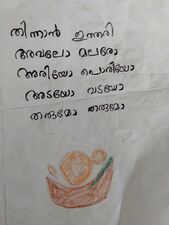 തിന്നാൻ ഇത്തരി
അവലോ മലരോ
അരിയോ പൊരിയോ
അടയോ വടയോ
തരുമോ തരുമോ